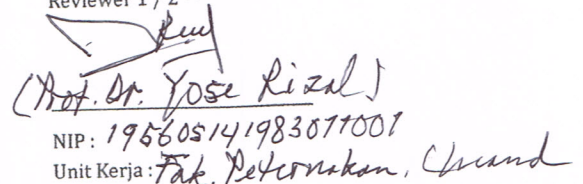 Reviewer 1 / 2
(Prof. Dr. Yose Rizal)
NIP : 195605141983011001
Unit Kerja : Fak. Peternakan, Unand